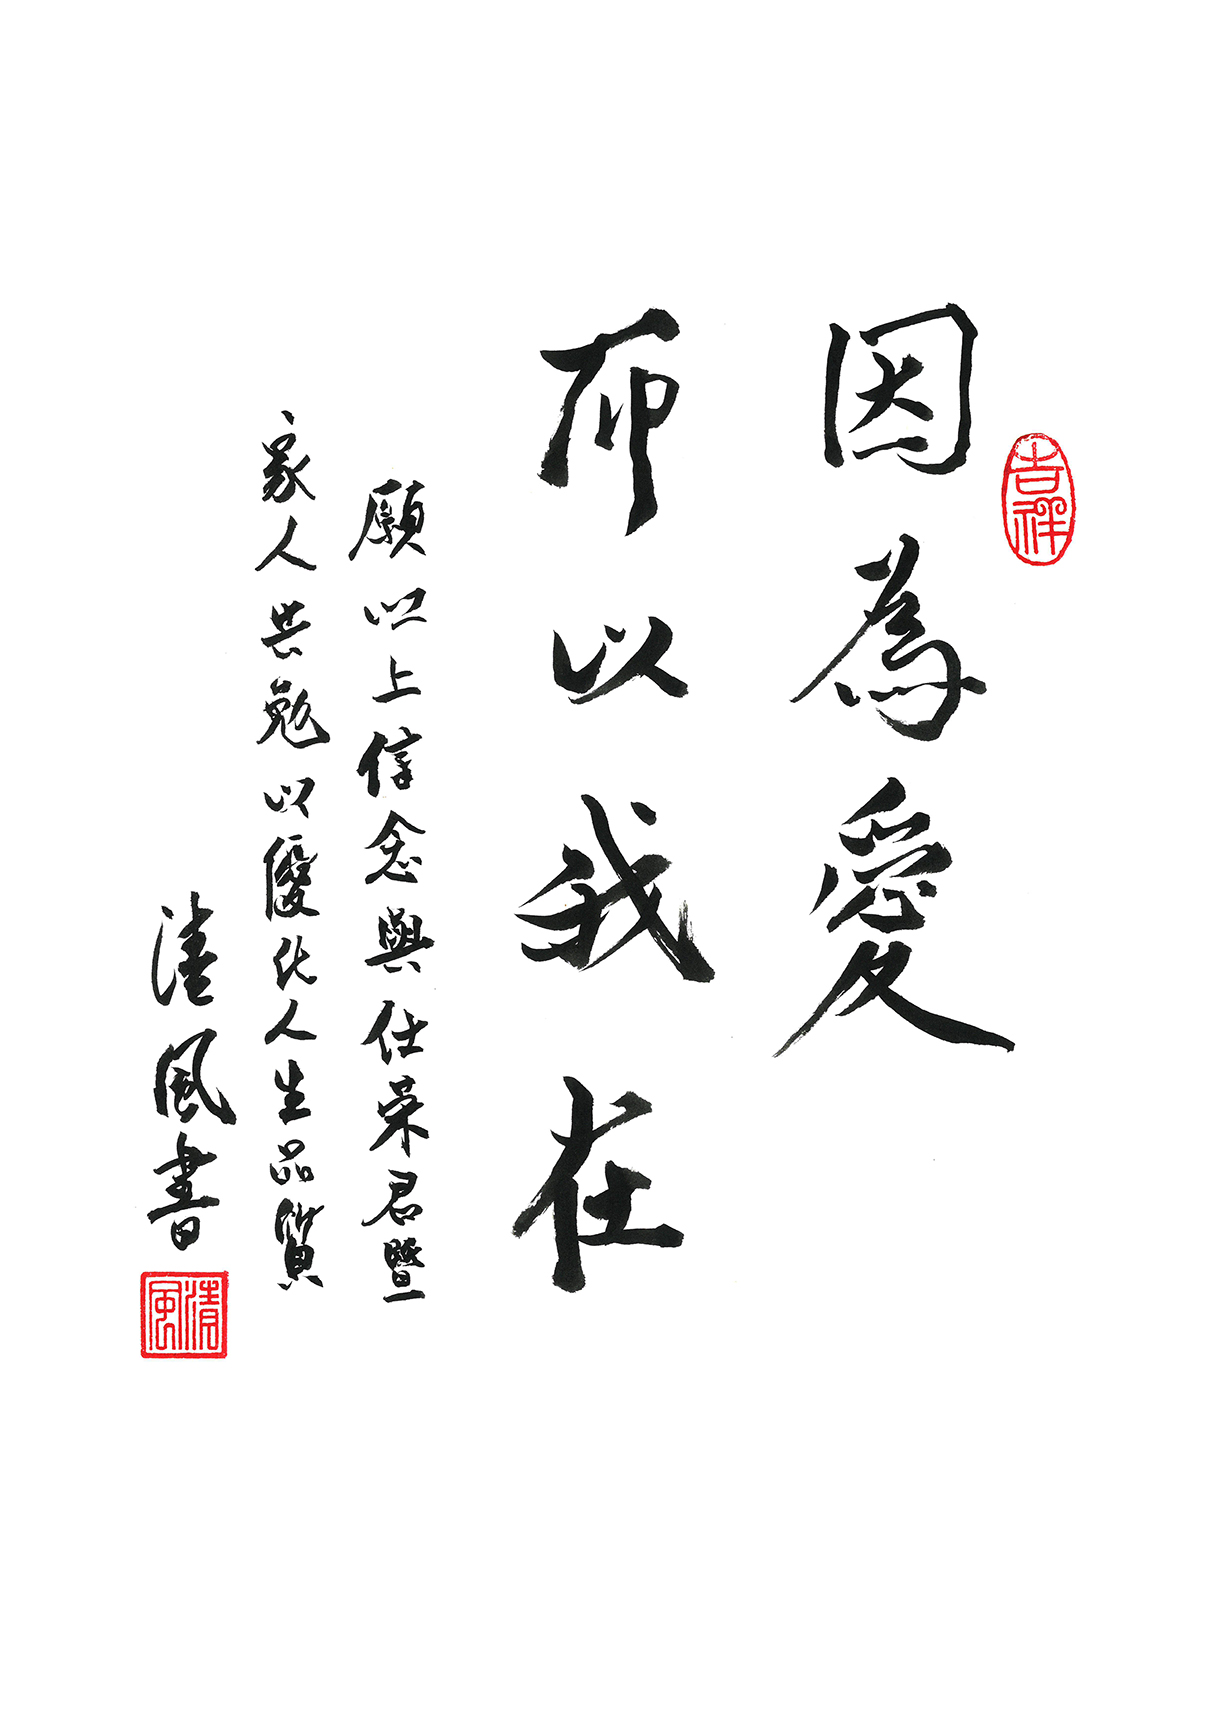 吉祥
因為愛
所以我在
願以上信念與仕榮君暨
家人共勉以優化人生品質
清風書
清風